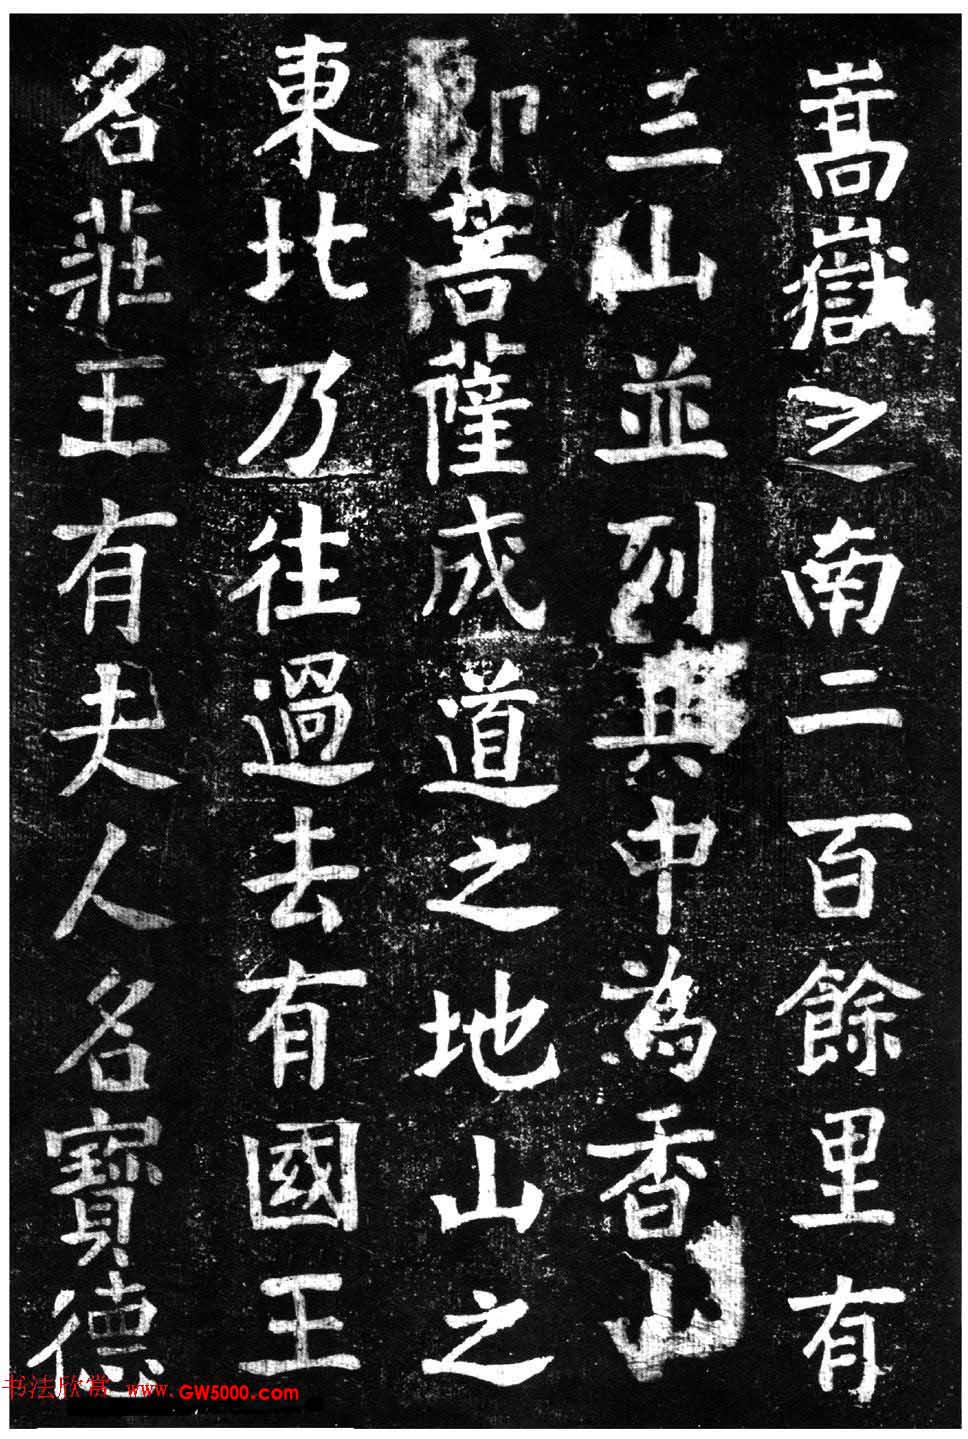 嵩嶽之南二百餘里有
三山並列其中為香山
即菩薩成道之地山之
東北乃往過去有國王
名莊王有夫人名寶德
书法欣赏 www.GW5000.com